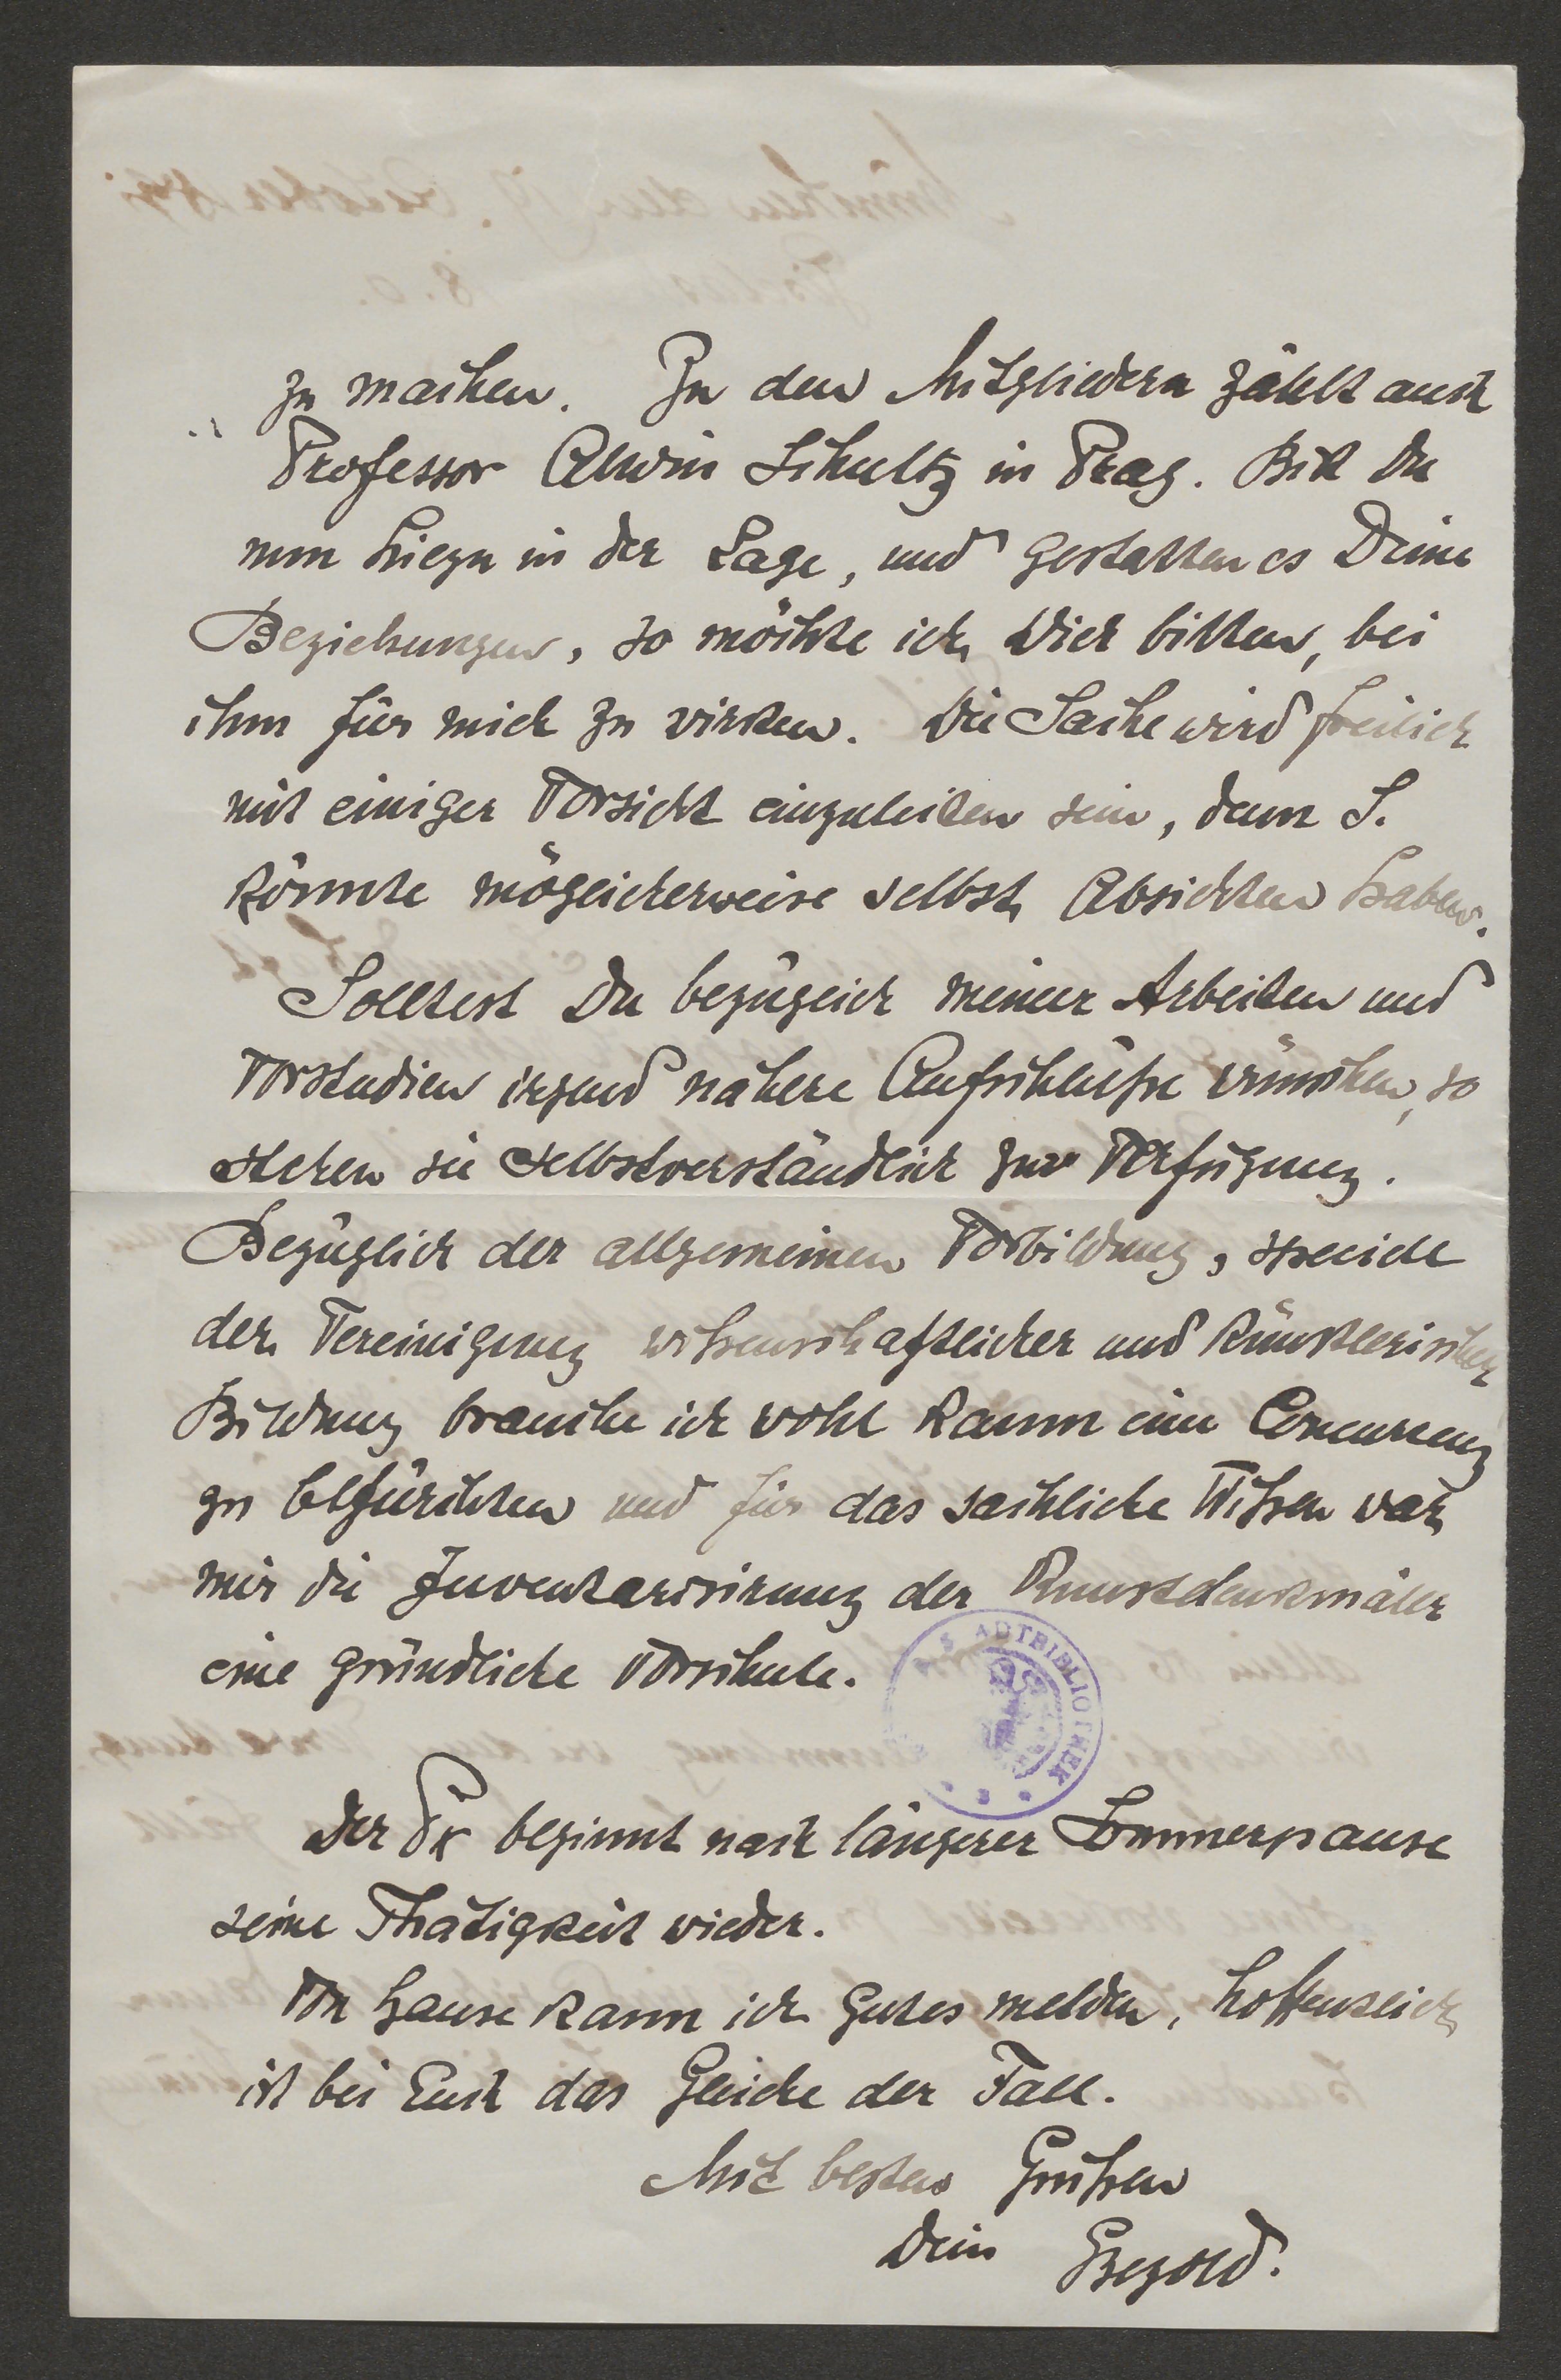 zu machen. Zu den Mitgliedern zählt auch
Professor Alwin Schultz in Prag. Bist Du
nun hiezu in der Lage, und gestatten es Deine
Beziehungen, so möchte ich Dich bitten, bei
ihm für mich zu wirken. Die Sache wird freilich
mit einiger Vorsicht einzuleiten sein, denn S.
könnte möglicherweise selbst Absichten haben.
Solltest Du bezüglich meiner Arbeiten und
Vorstudien irgend nähere Aufschlüße wünschen, so
stehen sie selbstverständlich zur Verfügung.
Bezüglich der allgemeinen Vorbildung, speciell
der Vereinigung wißenschaftlicher und künstlerischer
Bildung brauche ich wohl kaum eine Concurrenz
zu befürchten und für das sachliche Wißen war
mir die Inventarisirung der Kunstdenkmäler
eine gründliche Vorschule.
STADTBIBLIOTHEK
Der beginnt nach längerer Sommerpause
seine Thätigkeit wieder.
Von Hause kann ich Gutes melden, hoffentlich
ist bei Euch das Gleiche der Fall.
Mit besten Grüßen
Dein GBezold.